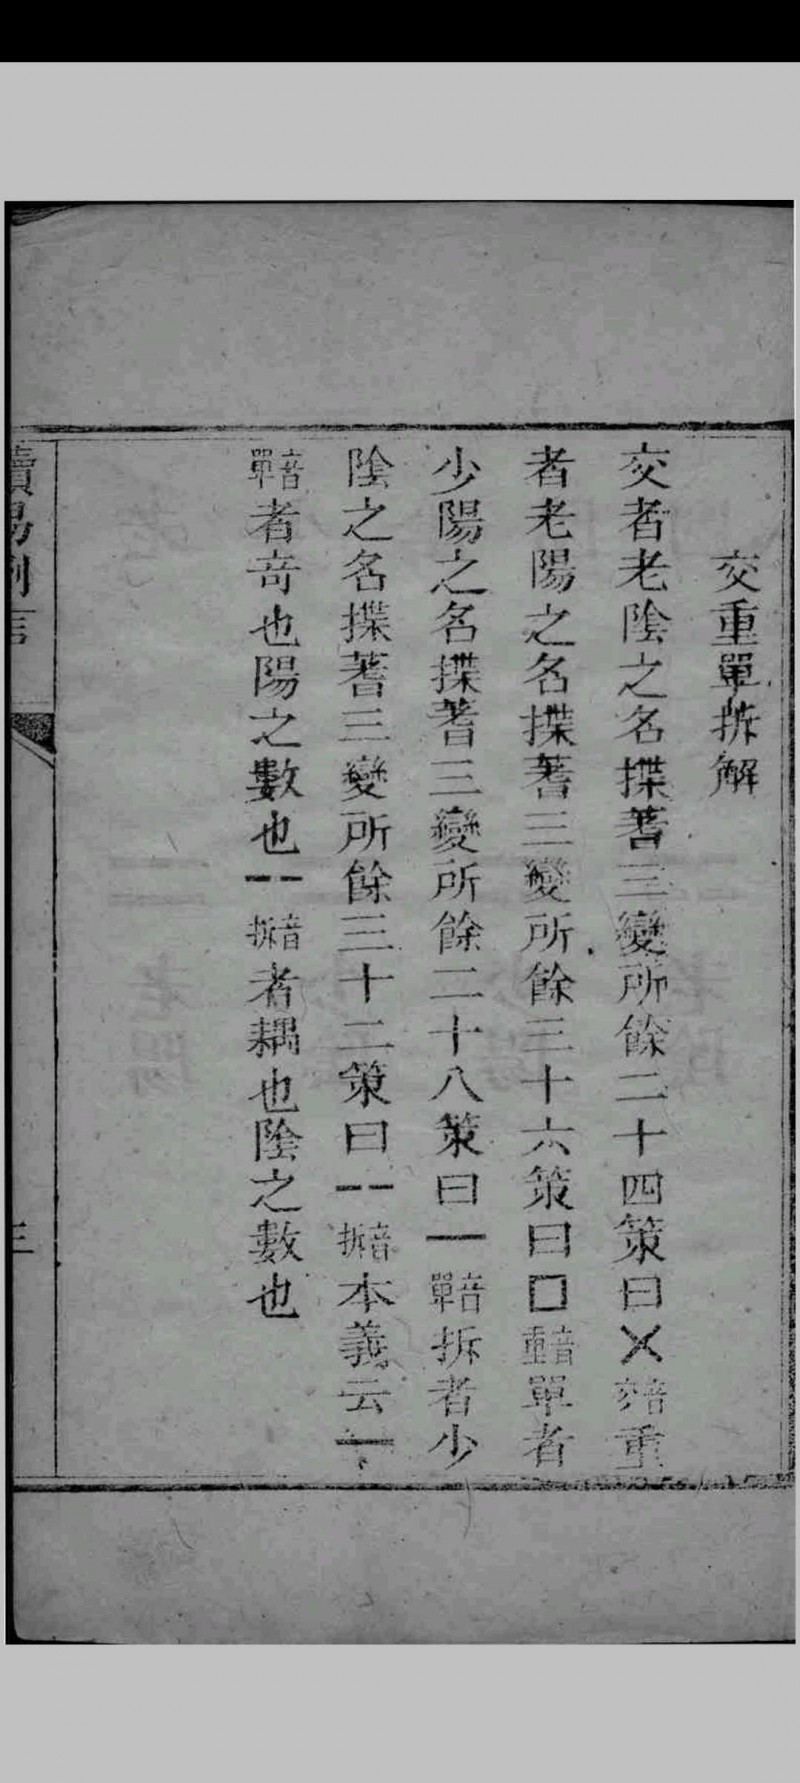 交重單拆解
交者老陰之名揲蓍三變所餘二十四策曰乂音交重
者老陽之名揲蓍三變所餘三十六策曰囗音重單者
少陽之名揲蓍三變所餘二十八策曰一音單拆者少
陰之名揲蓍三變所餘三十二策曰⚋音拆本義云一
音單者竒也陽之數也⚋音拆者耦也陰之數也
讀易
三